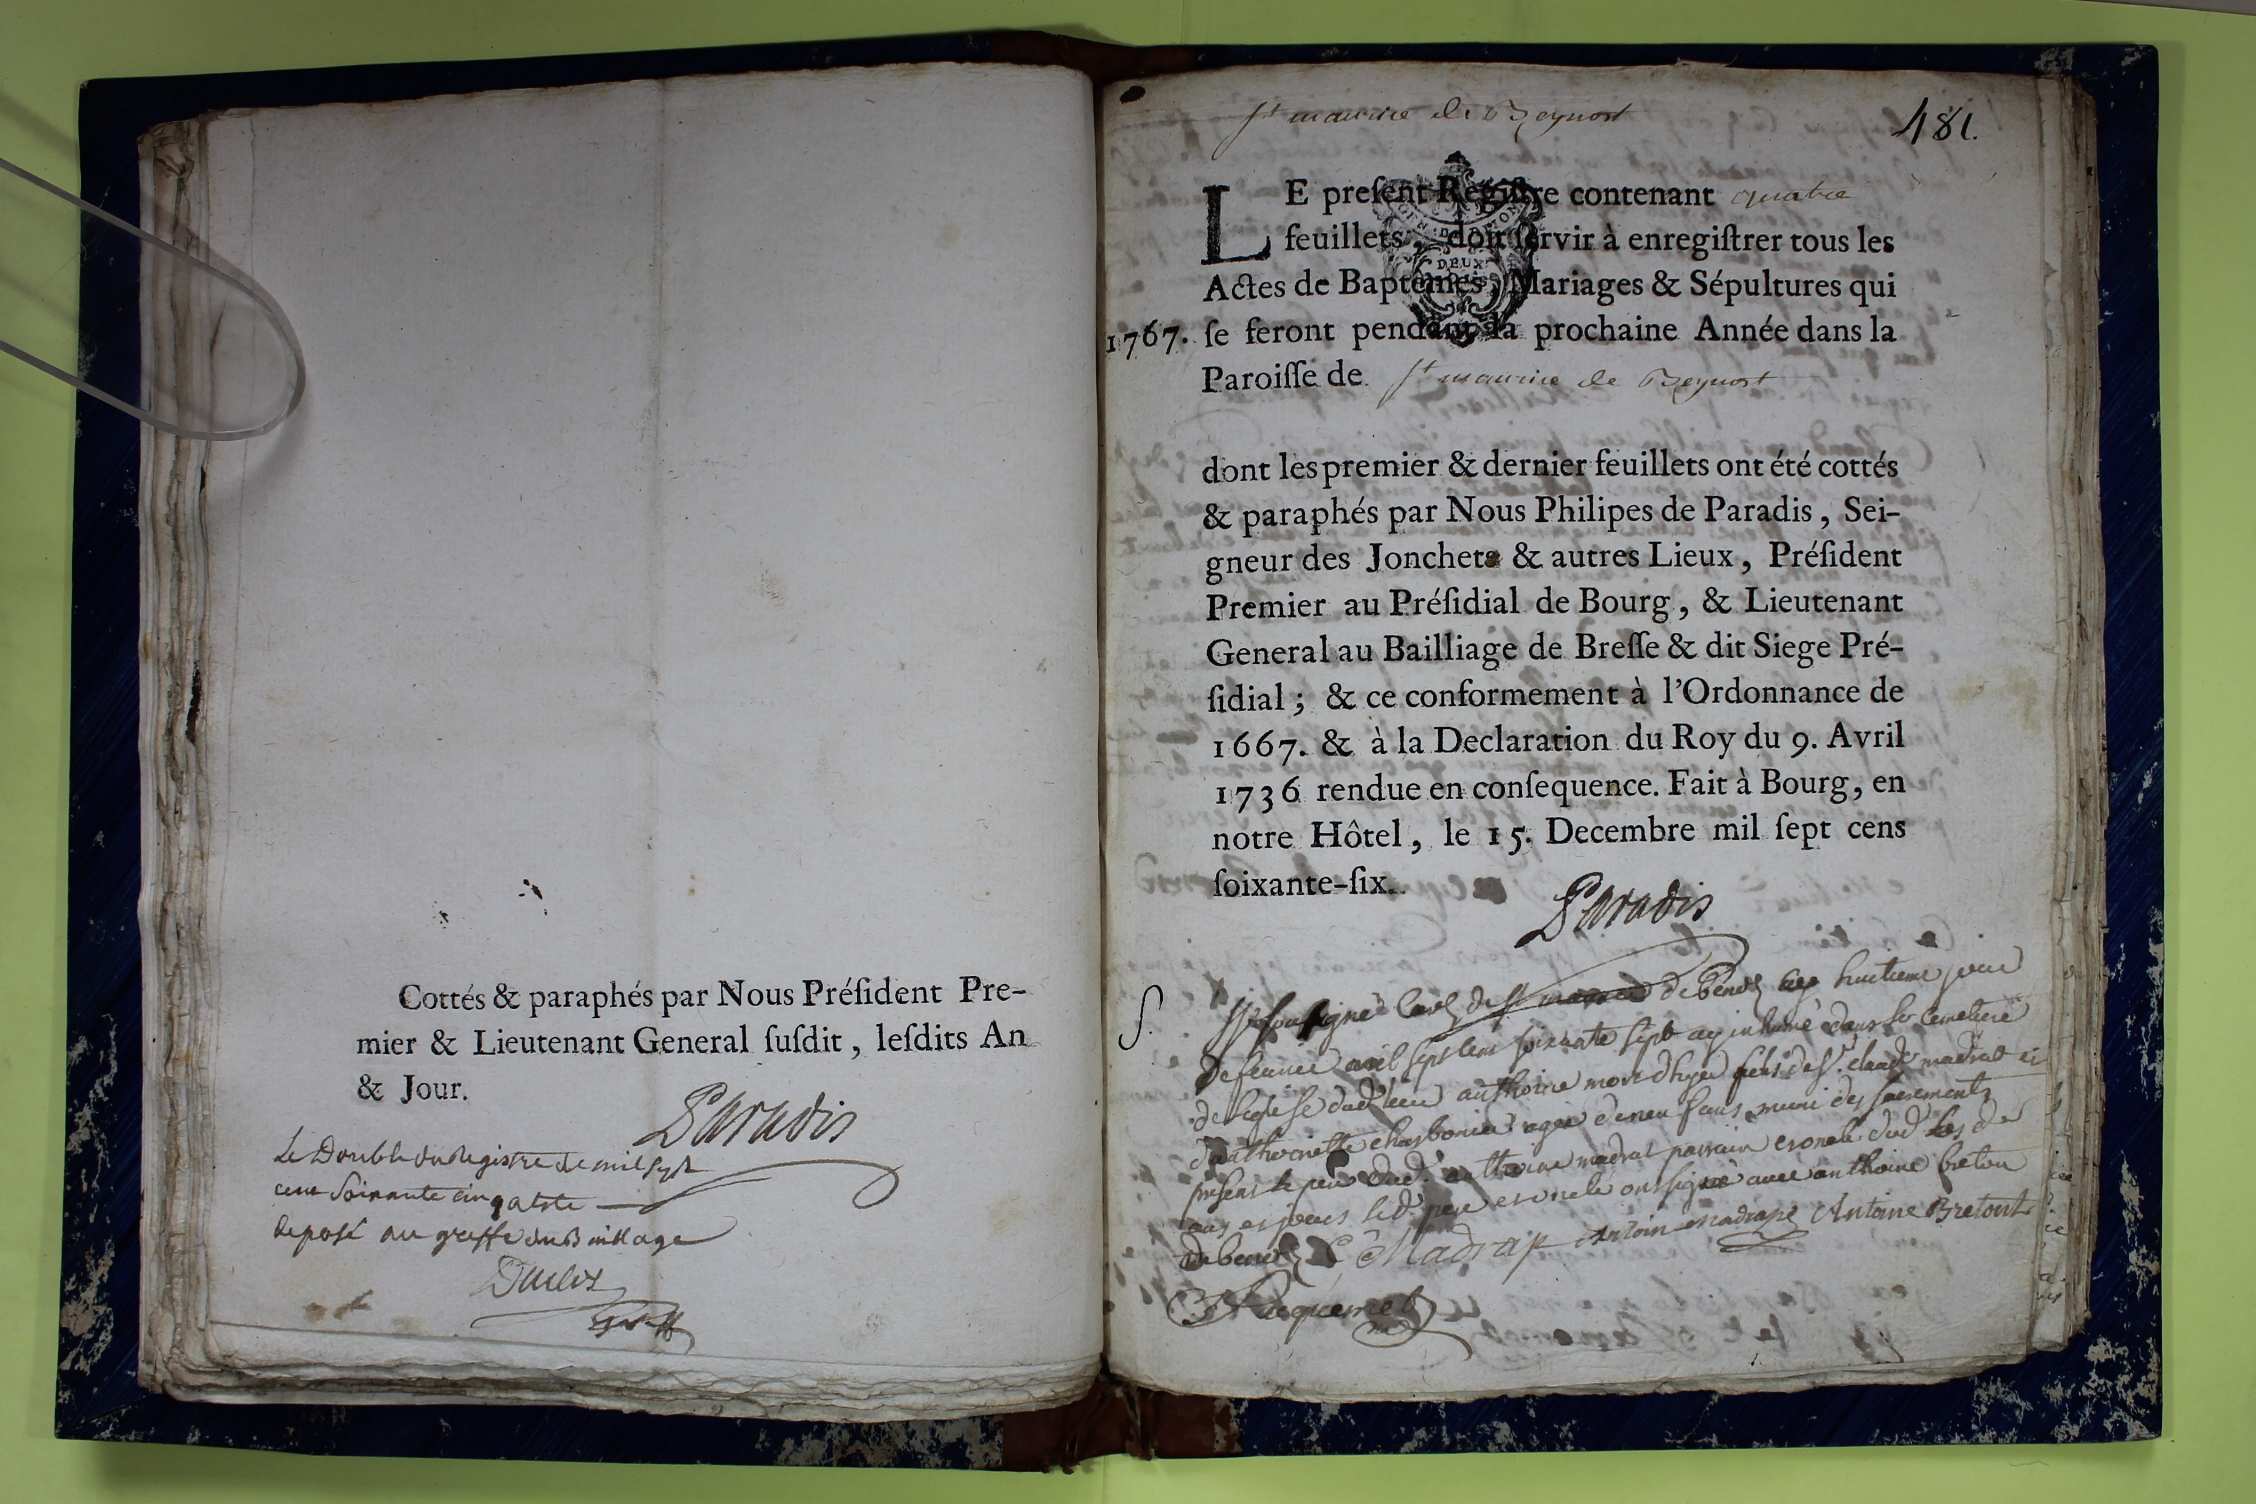 Cottés & paraphés par Nous Préſident Pre-
mier & Lieutenant General ſuſdit, leſdits An
& Jour.
Paradis
Le Double du Registre de mil sept
cent soixante cinq a été
deposé au greffe du Bailliage
St maurice de Beynost
481.
LE preſent Regiſtre contenant quatre
feuillets, doit ſervir à enregiſtrer tous les
Actes de Baptêmes, Mariages & Sépultures qui
1767. ſe feront pendant la prochaine Année dans la
Paroiſſe de St maurice de Beynost
DEUX
dont les premier & dernier feuillets ont été cottés
& paraphés par Nous Philipes de Paradis, Sei-
gneur des Jonchets & autres Lieux, Préſident
Premier au Préſidial de Bourg, & Lieutenant
General au Bailliage de Breſſe & dit Siege Pré-
ſidial; & ce conformement à l'Ordonnance de
1667. & à la Declaration du Roy du 9. Avril
1736 rendue en conſequence. Fait à Bourg, en
notre Hôtel, le 15. Decembre mil ſept cens
ſoixante-ſix.
Paradis
S. Je soussigné Curé de St huitieme jour
mil sept cent soixante sept ay inhumé dans le Cemetiere
de leglise dud lieu anthoine mort dhyer fils de Sr. claude madrat et
charbonier agé de munit des sacrements
present le pere dud. anthoine madrat parrain et oncle dud
et jours led. pere et oncle ont signé avec anthoine breton
C Madrap Antoin madrapt Antoine Bretont
Jacquemet